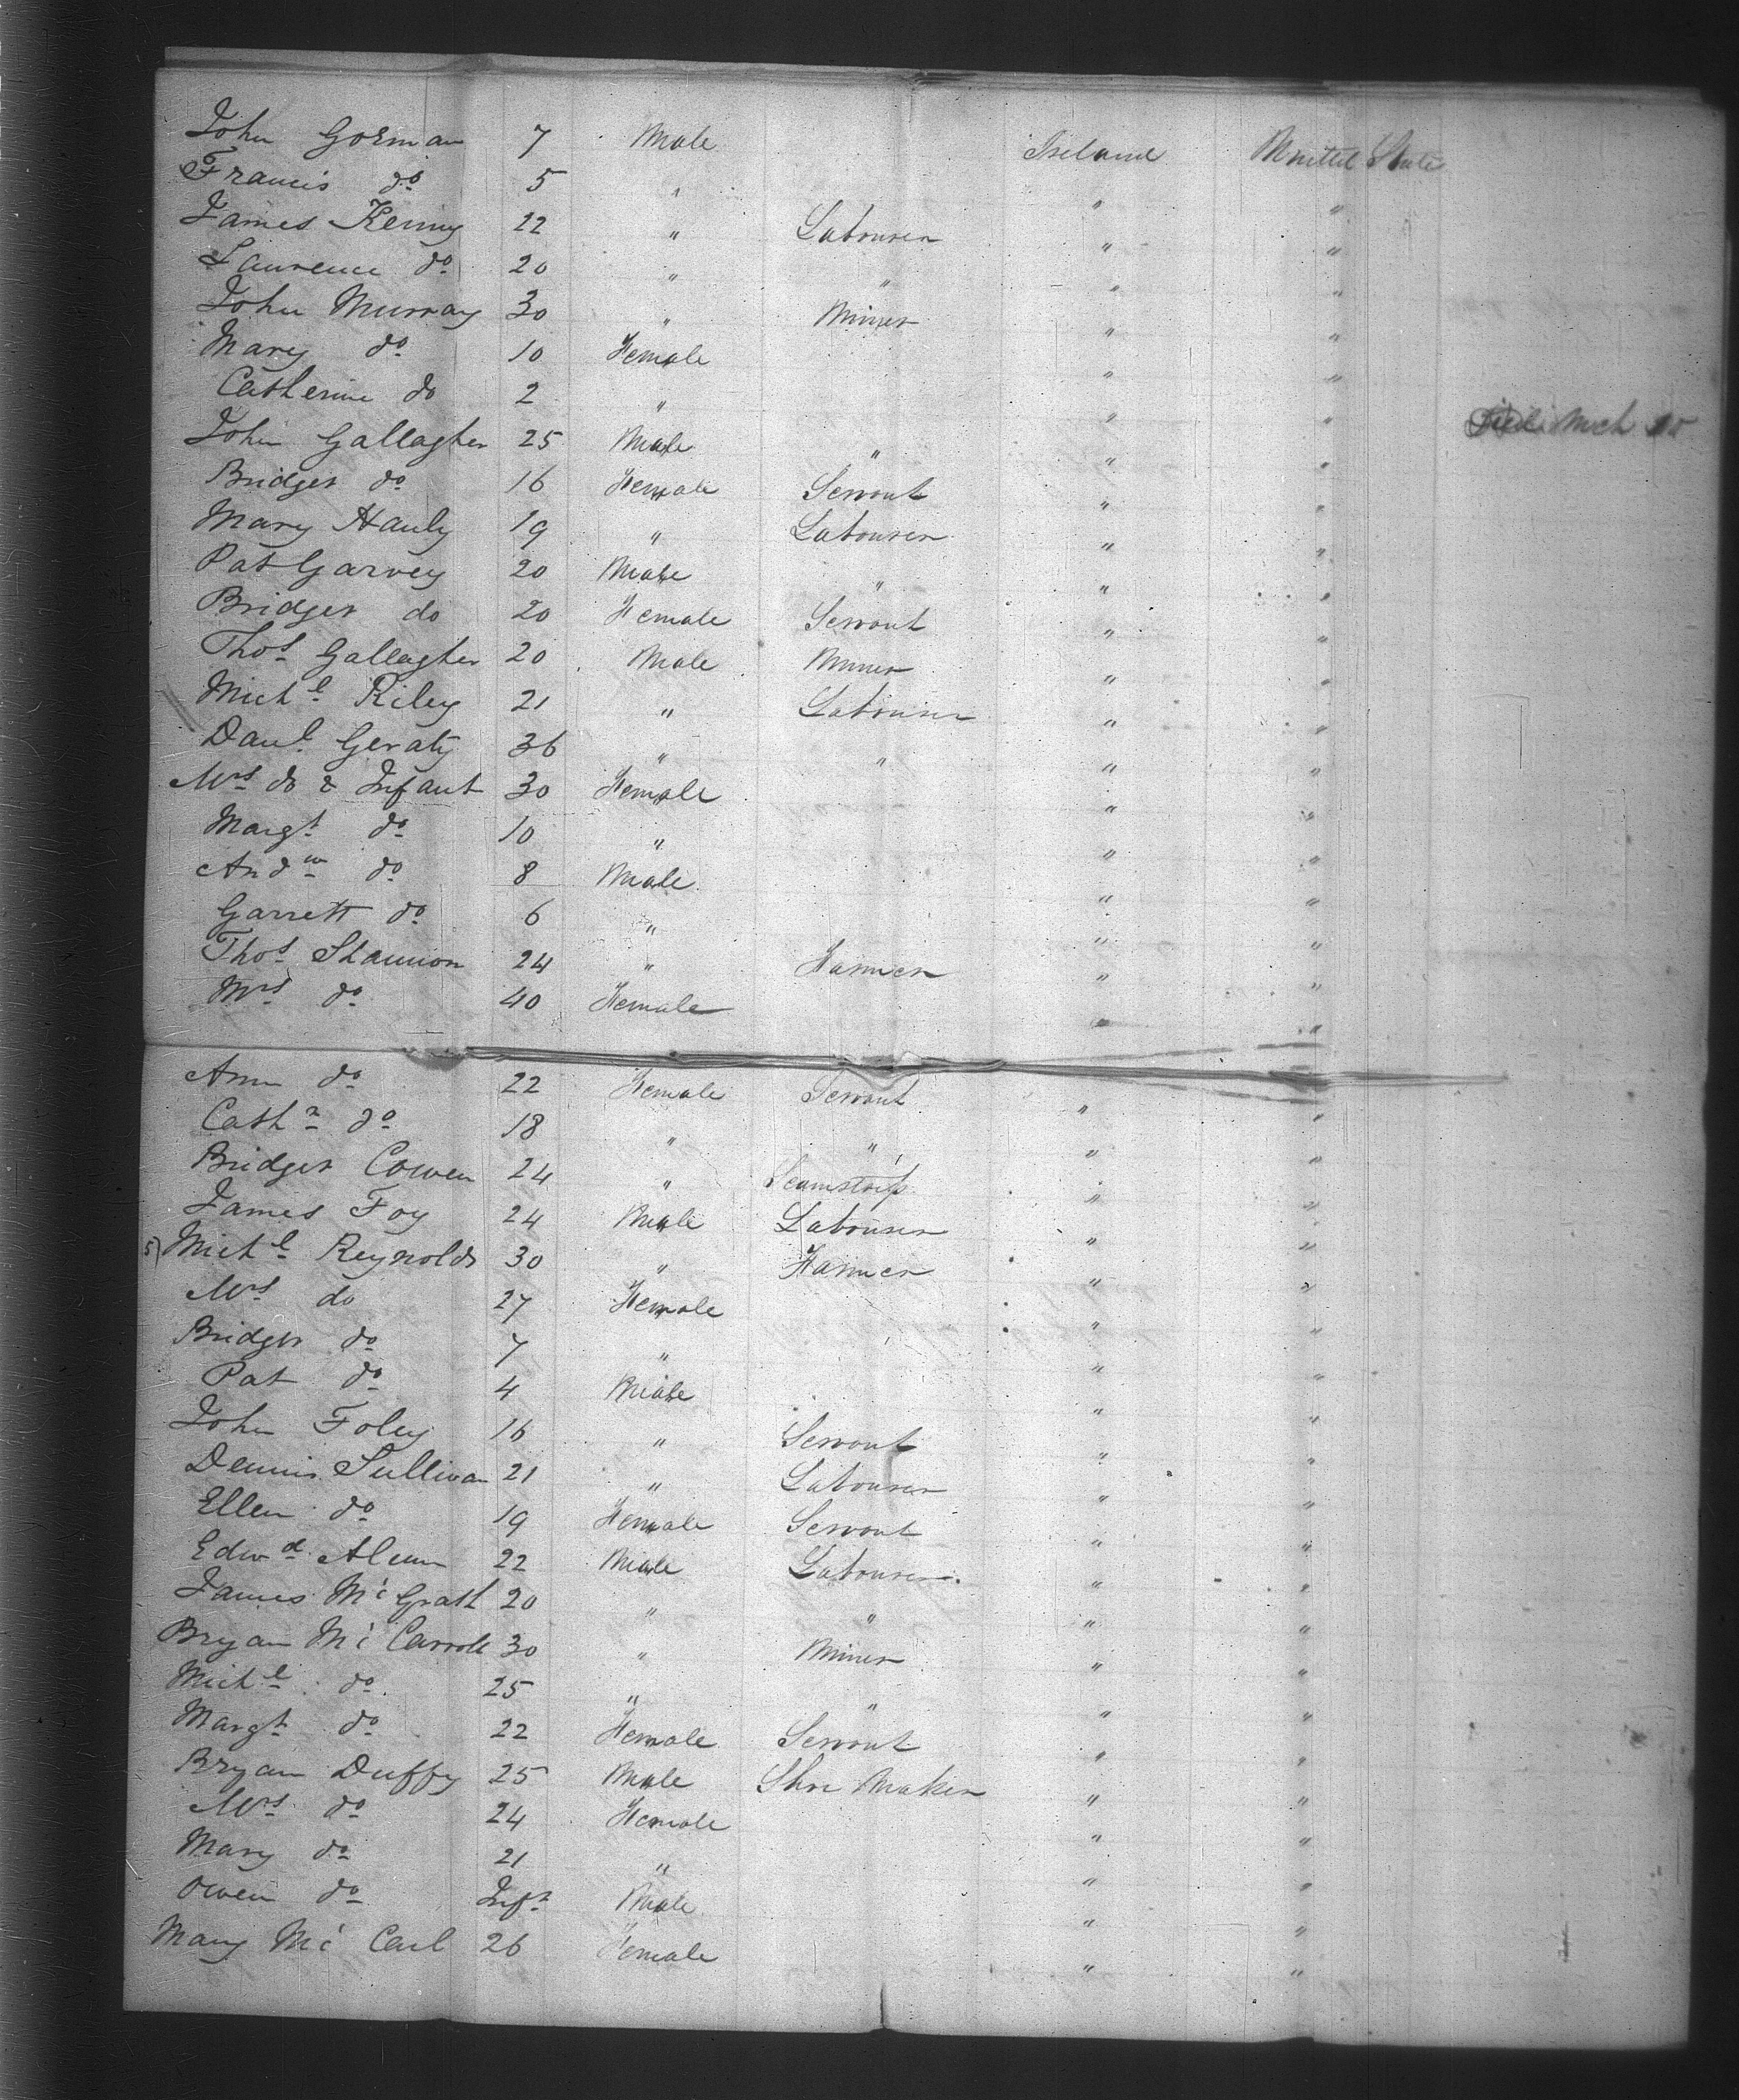 John Gorman 7 Male Ireland United State
Francis do 5 " " "
James Kenny 22 " Labourer " "
Laurence do 20 " " " "
John Murray 30 " Miner " "
Mary do 10 Female " "
Catherine do 2 " " " Died March 10
John Gallagher 25 Male " " "
Bridget do 16 Female Servant " "
Mary Hanly 19 " Labourer " "
Pat Garvey 20 Male " " "
Bridget do 20 Female Servant " "
Thos Gallagher 20 Male Miner " "
Michl Riley 21 " Labourer " "
Danl Geraty 36 " " " "
Mrs do & Infant 30 Female " "
Margt do 10 " " "
Andw do 8 Male " "
Garrett do 6 " " "
Thos Shannon 24 " Farmer " "
Mrs do 40 Female " "
Ann do 22 Female Servant " "
Cathn do 18 " " " "
Bridget Cowen 24 " Seamstress " "
James Foy 24 Male Labourer " "
Michl Reynolds 30 " Farmer " "
Mrs do 27 Female " "
Bridget do 7 " " "
Pat do 4 Male " "
John Foley 16 " Servant " "
Dennis Sullivan 21 " Labourer " "
Ellen do 19 Female Servant " "
Edwd 22 Male Labourer " "
James Mc Grath 20 " " " "
Bryan Mc Carroll 30 " Miner " "
Michl do 25 " " " "
Margt do 22 Female Servant " "
Bryan Duffy 25 Male Shoe Maker " "
Mrs do 24 Female " "
Mary do 21 " " "
Owen do Inft Male " "
Mary Mc 26 Female " "